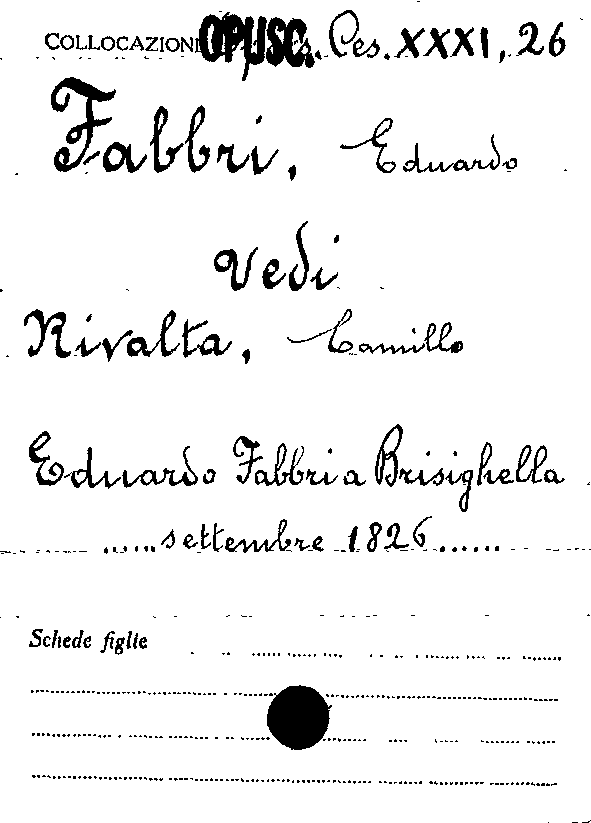 COLLOCAZIONE OPUSC. Ces. XXXI, 26
Fabbri, Eduardo
Vedi
Rivalta, Camillo
Eduardo Fabbri a Brisighella
......settembre 1826......
Schede figlie